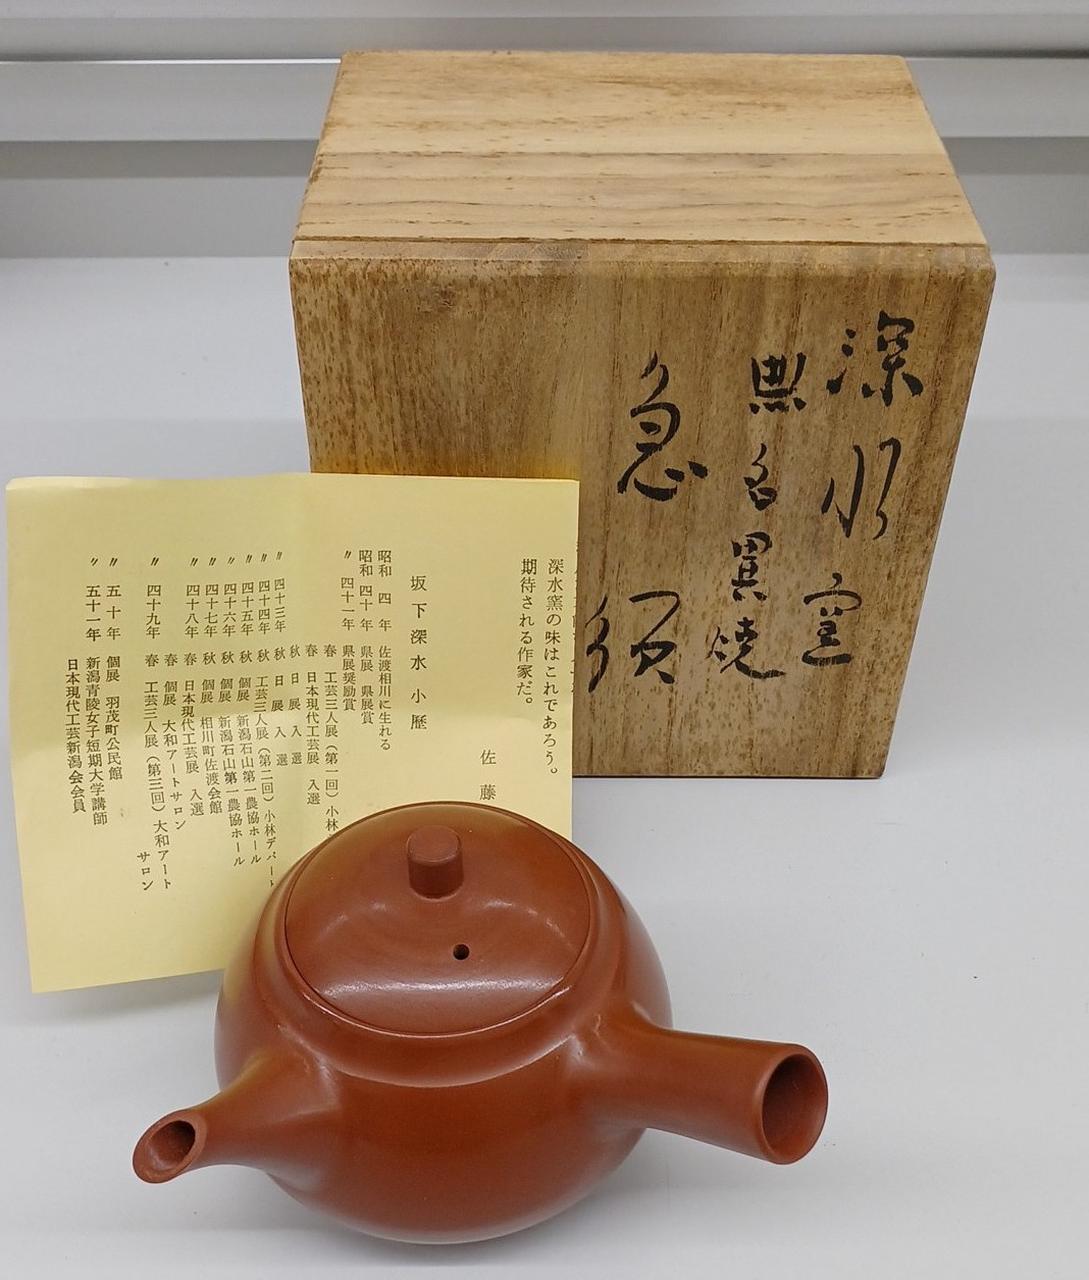 深水窯
無名異焼
急須
深水窯の味はこれであろう。
期待される作家だ。
佐藤
坂下深水 小歴
昭和 四 年 佐渡相川に生れる
昭和 四十 年 県展 県展賞
〃 四十一年 県展奨励賞
春 工芸三人展(第一回)小林
春 日本現代工芸展 入選
秋 日展入選
〃 四十三年 秋 日展入選
〃 四十四年 秋 工芸三人展(第二回)小林デパート
〃 四十五年 秋 個展 新潟石山第一農協ホール
〃 四十六年 秋 個展 新潟石山第一農協ホール
〃 四十七年 秋 個展 相川町佐渡会館
〃 四十八年 春 日本現代工芸展 入選
春 個展 大和アートサロン
〃 四十九年 春 工芸三人展(第三回)大和アート
サロン
〃 五十年 個展 羽茂町公民館
〃 五十一年 新潟青陵女子短期大学講師
日本現代工芸新潟会会員